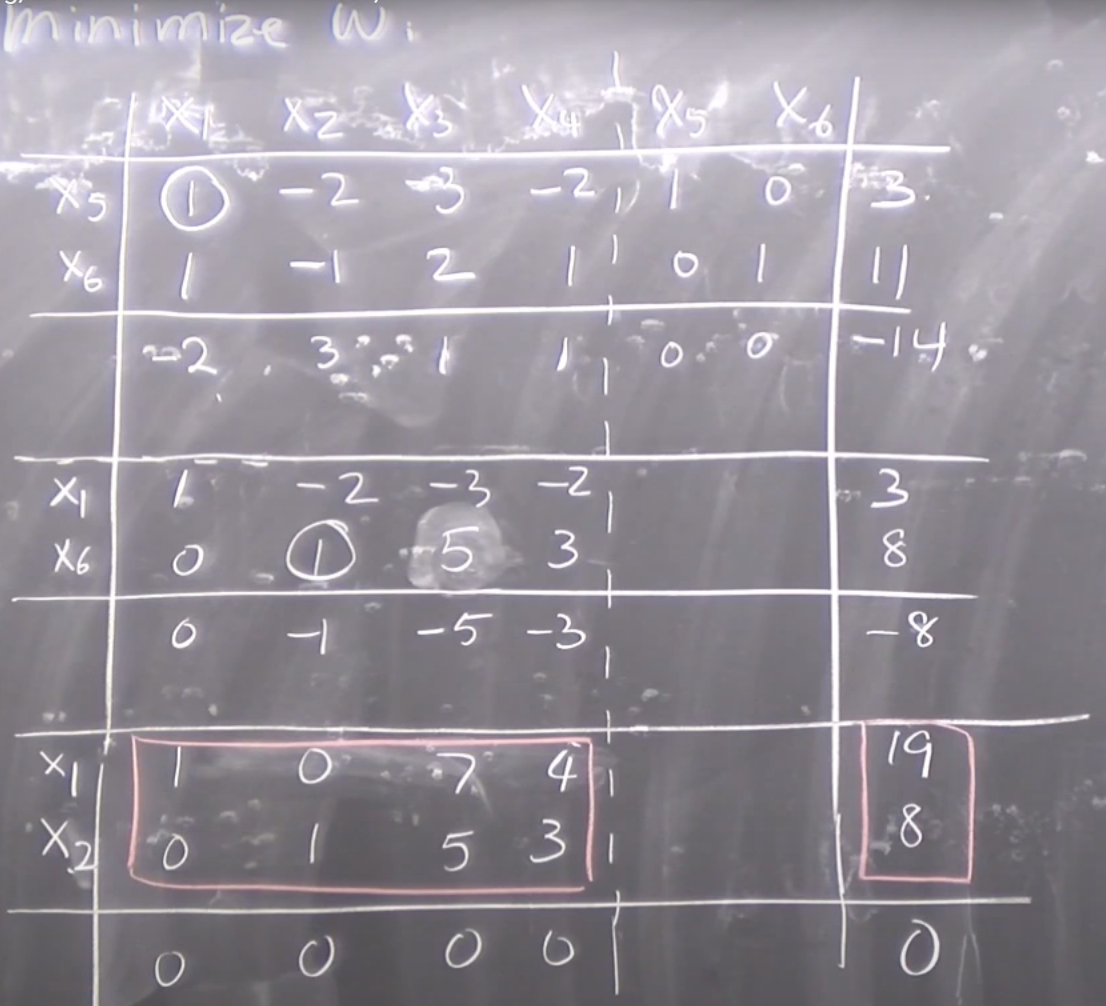 minimize W.
X1 X2 X3 X4 X5 X6
X5 1 -2 -3 -2 1 0 3
X6 1 -1 2 1 0 1 11
-2 3 1 1 0 0 -14
X1 1 -2 -3 -2 3
X6 0 1 5 3 8
0 -1 -5 -3 -8
X1 1 0 7 4 19
X2 0 1 5 3 8
0 0 0 0 0